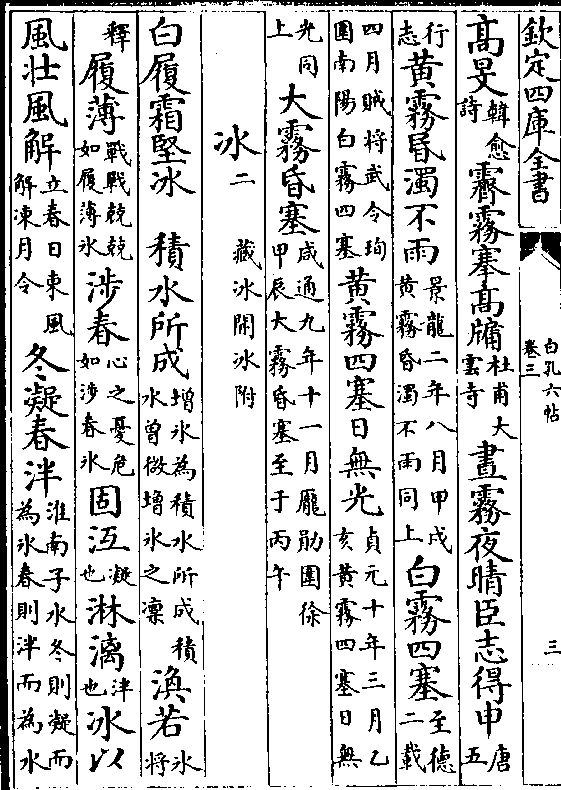 欽定四庫全書
白孔六帖
卷三
三
高旻韓愈詩霽霧塞高牖杜甫大雲寺晝霧夜晴臣志得申唐五
行志黃霧昏濁不雨景龍二年八月甲戌黃霧昏濁不雨同上白霧四塞至德二載
四月賊将武令珣圍南陽白霧四塞黃霧四塞日無光貞元十年三月乙亥黃霧四塞日無
光同上大霧昏塞咸通九年十一月龐勛圍徐甲辰大霧昏塞至于丙午
冰二藏冰開冰附
白履霜堅冰積水所成增冰為積水所成積水曾微增冰之凜渙若冰将
釋履薄戰戰兢兢如履薄冰涉春心之憂危如涉春冰固冱凝也淋漓津也冰以
風壯風解立春日東風解凍月令冬凝春泮淮南子水冬則凝而為冰春則泮而為水